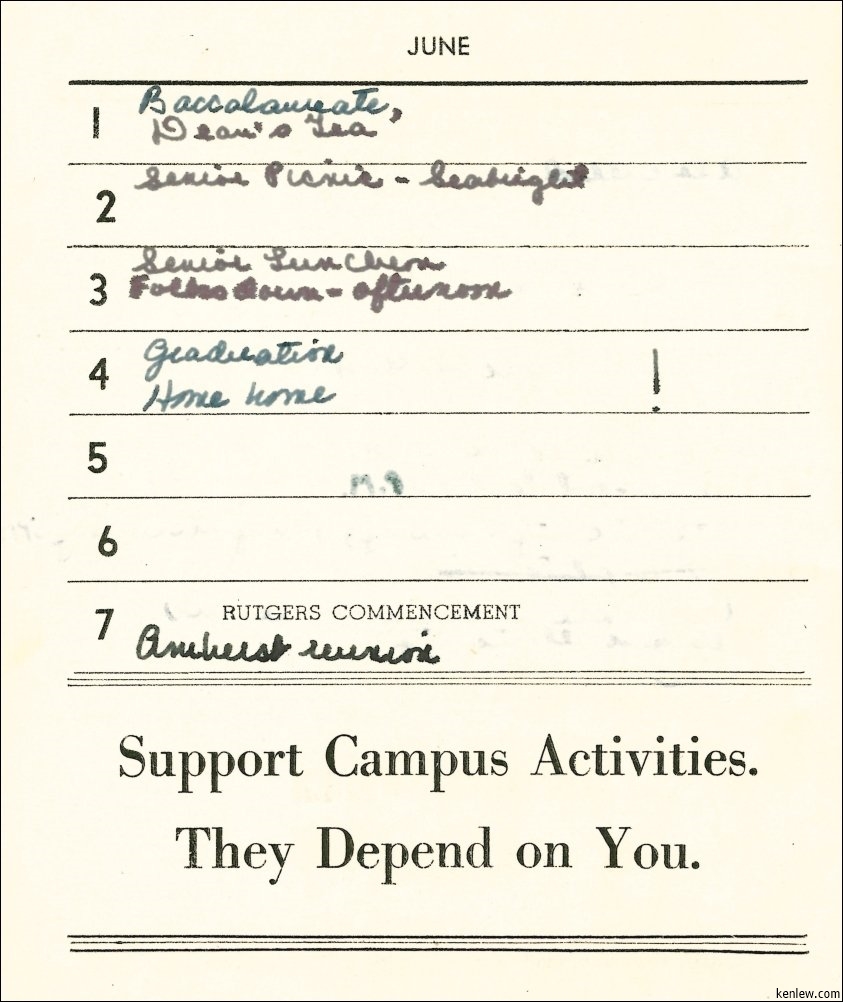 JUNE
1 Baccalaureate,
Dean's Tea
2 Senior Picnic - Seabright
3 Senior Luncheon
Folks down - afternoon
4 Graduation
Home home !
5
6
7 RUTGERS COMMENCEMENT
Amherst reunion
Support Campus Activities.
They Depend on You.
kenlew.com